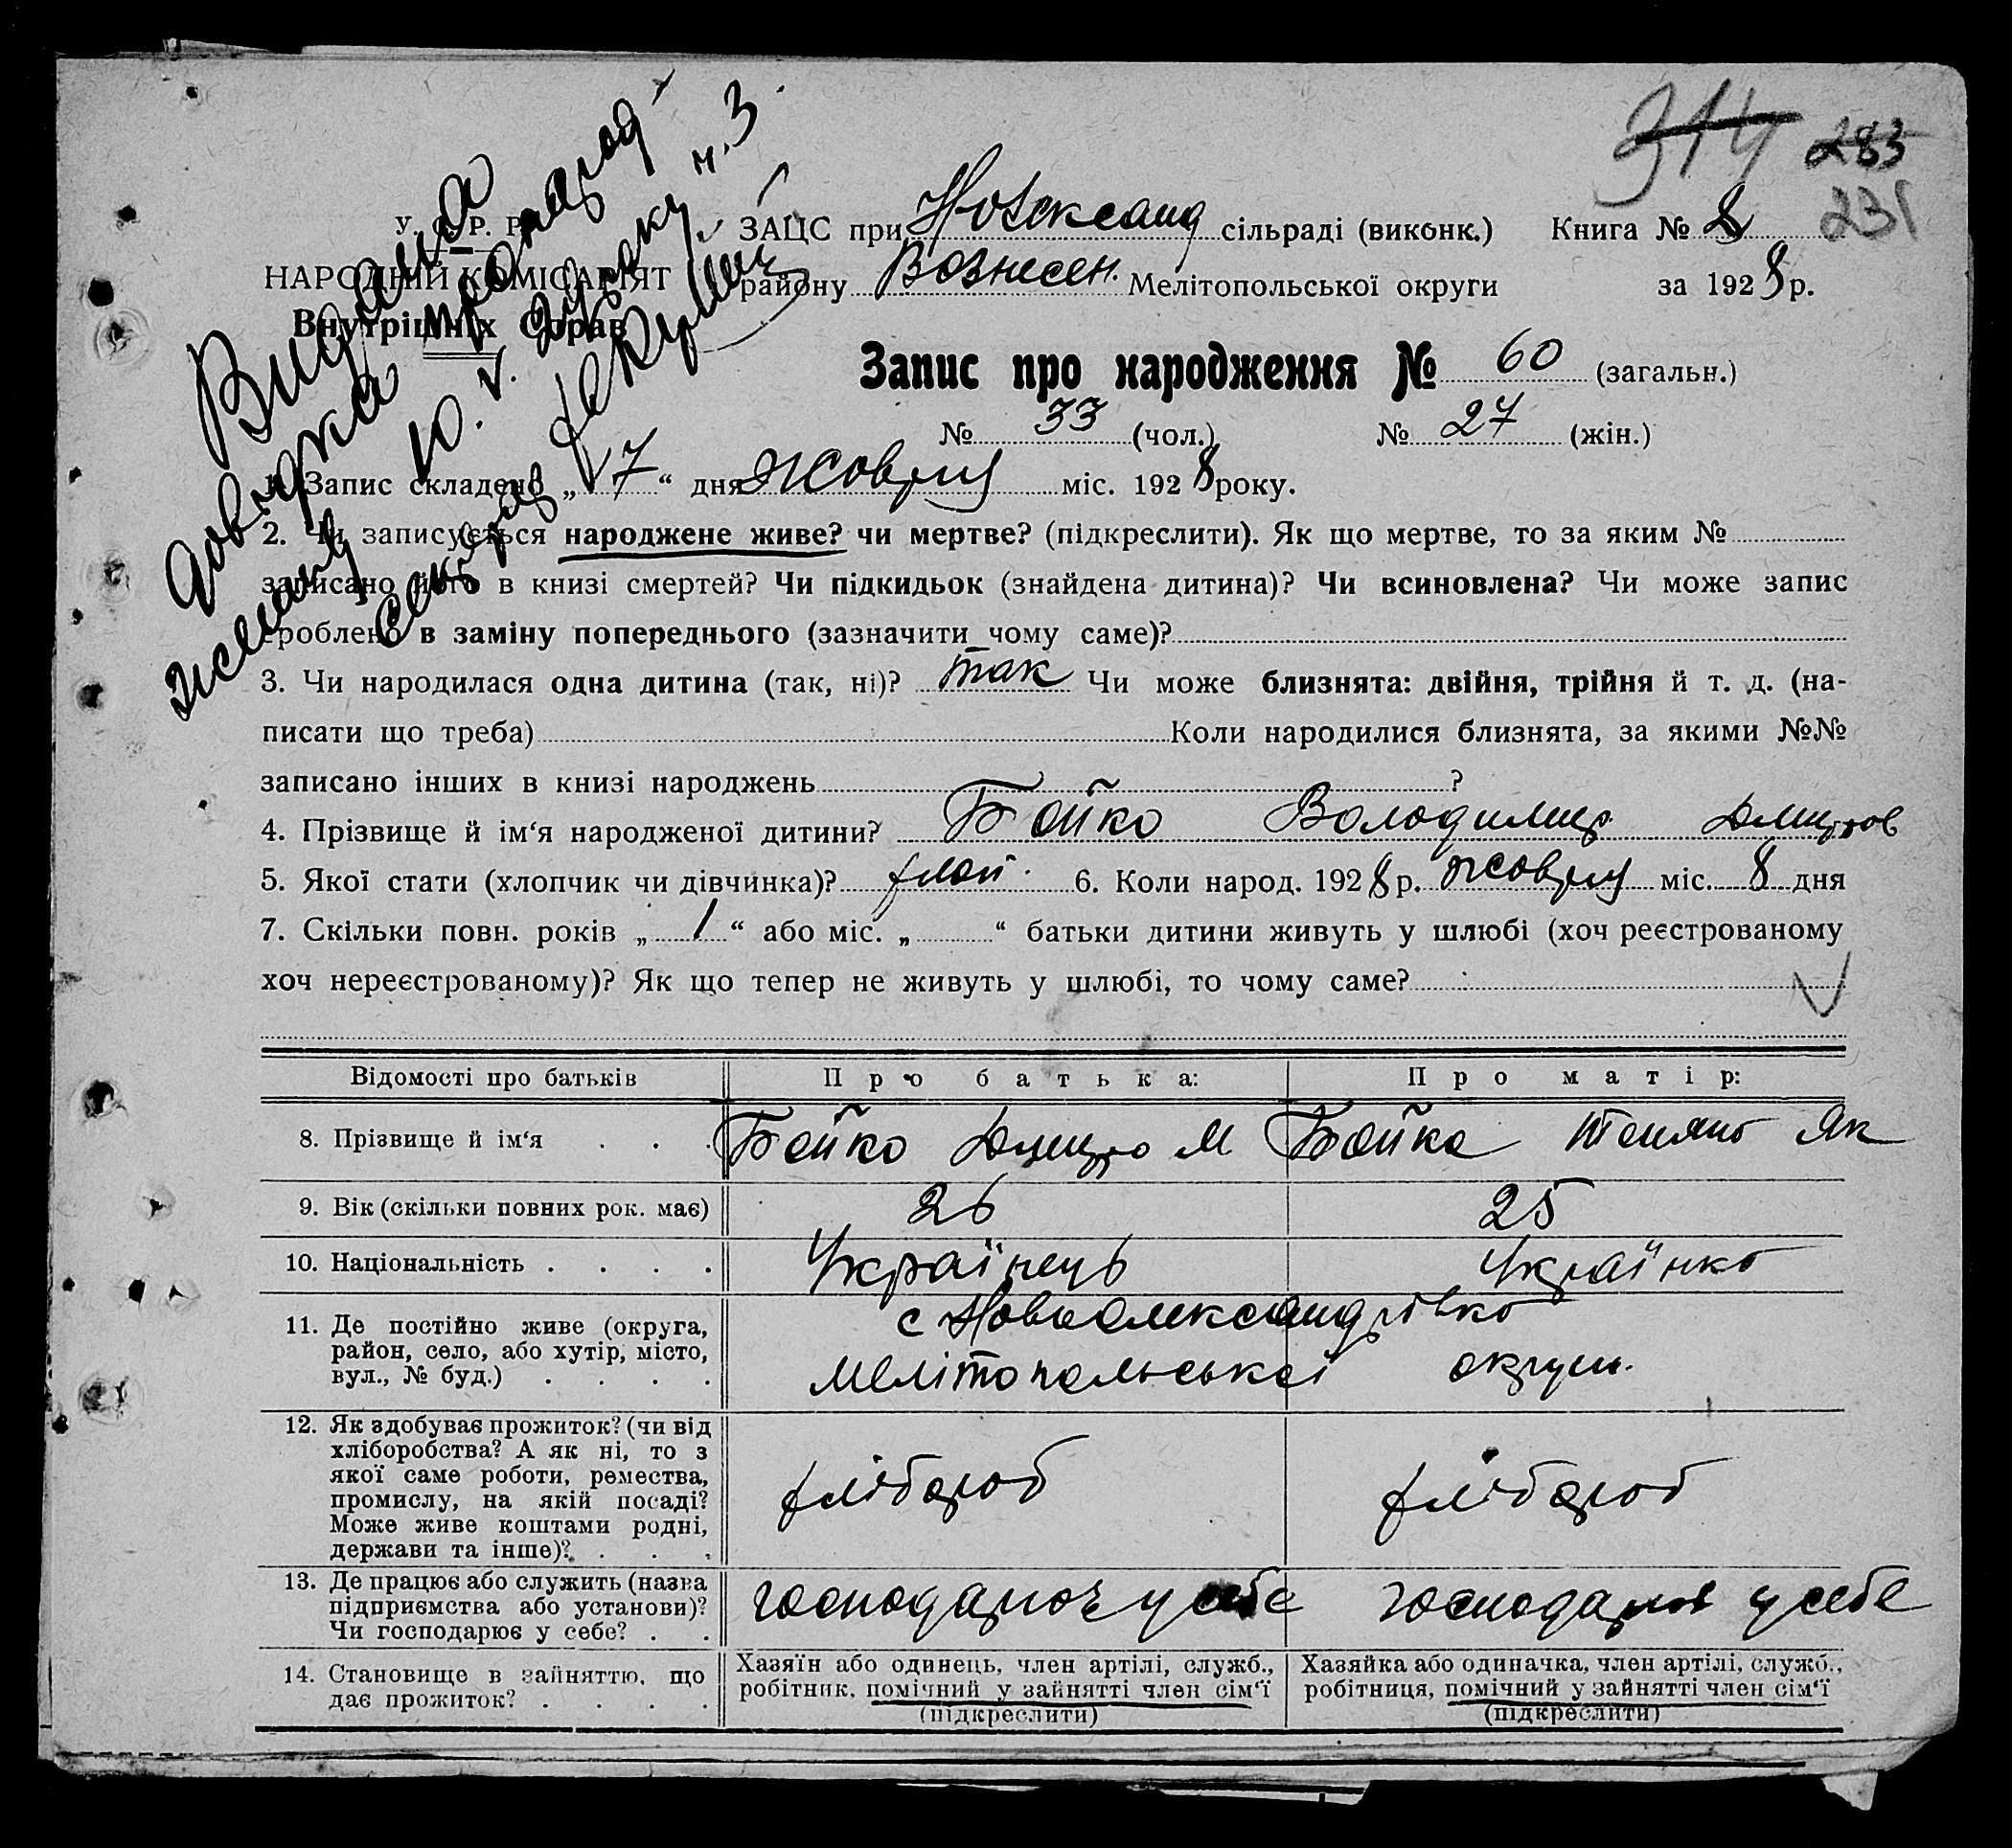 314 283
231
У. С. Р. Р.
НАРОДНИЙ КОМІСАРІЯТ
Внутрішніх Справ
ЗАЦС при Новоксанд сільраді (виконк.) Книга № 2
району Вознесен. Мелітопольської округи за 1928 р.
Запис про народження № 60 (загальн.)
№ 33 (чол.) № 27 (жін.)
Видано
довідка про народ
н. 3
1. Запис складено „17“ дня жовтня міс. 1928 року.
2. Чи записується народжене живе? чи мертве? (підкреслити). Як що мертве, то за яким №
записано його в книзі смертей? Чи підкидьок (знайдена дитина)? Чи всиновлена? Чи може запис
зроблено в заміну попереднього (зазначити чому саме)?
3. Чи народилася одна дитина (так, ні)? так Чи може близнята: двійня, трійня й т. д. (на-
писати що треба) Коли народилися близнята, за якими №№
записано інших в книзі народжень ?
4. Прізвище й ім‘я народженої дитини? Бойко Володимир Дмитров
5. Якої стати (хлопчик чи дівчинка)? хлоп. 6. Коли народ. 1928 р. жовтня міс. 8 дня
7. Скільки повн. років „1“ або міс. „ “ батьки дитини живуть у шлюбі (хоч реєстрованому
хоч нереєстрованому)? Як що тепер не живуть у шлюбі, то чому саме?
Відомості про батьків Про батька: Про матір:
8. Прізвище й ім‘я . . . Бойко Дмитро М Бойко Тетяно Як
9. Вік (скільки повних рок. має) 26 25
10. Національність . . . . Українець Українко
11. Де постійно живе (округа,
район, село, або хутір, місто,
вул., № буд.) . . . .
с Новоолександрівко
Мелітопольської округи.
12. Як здобуває прожиток? (чи від
хліборобства? А як ні, то з
якої саме роботи, ремества,
промислу, на якій посаді?
Може живе коштами родні,
держави та інше)? . . .
хлібороб хлібороб
13. Де працює або служить (назва
підприємства або установи)?
Чи господарює у себе? . .
господарює у себе господарює у себе
14. Становище в зайняттю, що
дає прожиток? . . . .
Хазяїн або одинець, член артілі, служб.,
робітник, помічний у зайнятті член сім‘ї
(підкреслити)
Хазяйка або одиначка, член артілі, служб.,
робітниця, помічний у зайнятті член сім‘ї
(підкреслити)